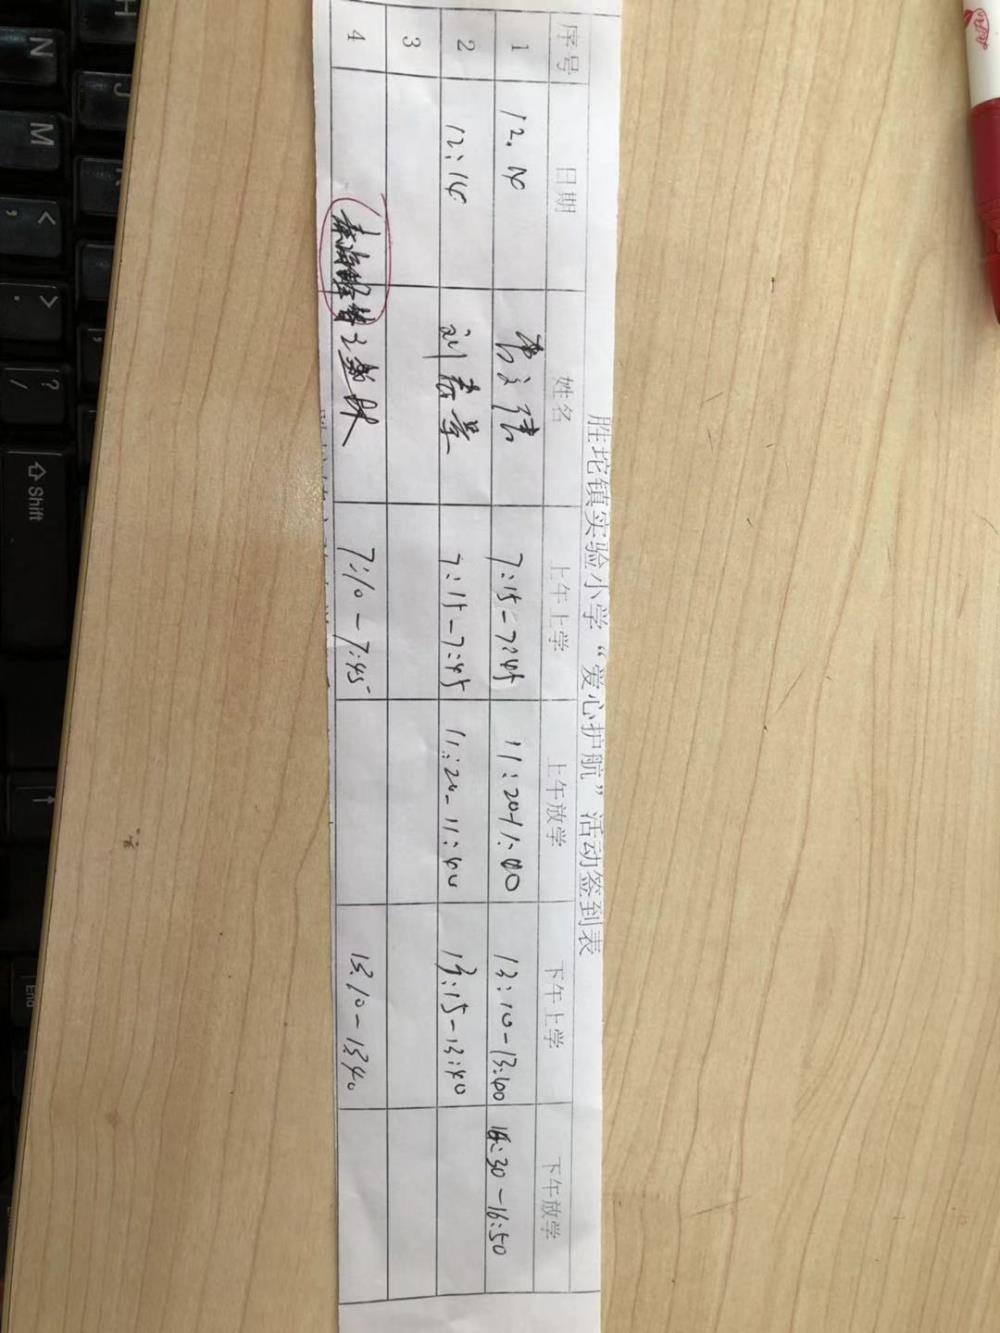 胜坨镇实验小学“爱心护航”活动签到表
序号 日期 姓名 上午上学 上午放学 下午上学 下午放学
1 12.14 7:15-7:45 11:20-11:40 13:10-13:40 16:30-16:50
2 12:14 刘春景 7:15-7:45 11:20-11:40 13:15-13:40
3
4 7:10-7:45 13.10-13.40
N
M
H
J
K
<
,
>
.
?
/
Shift
End